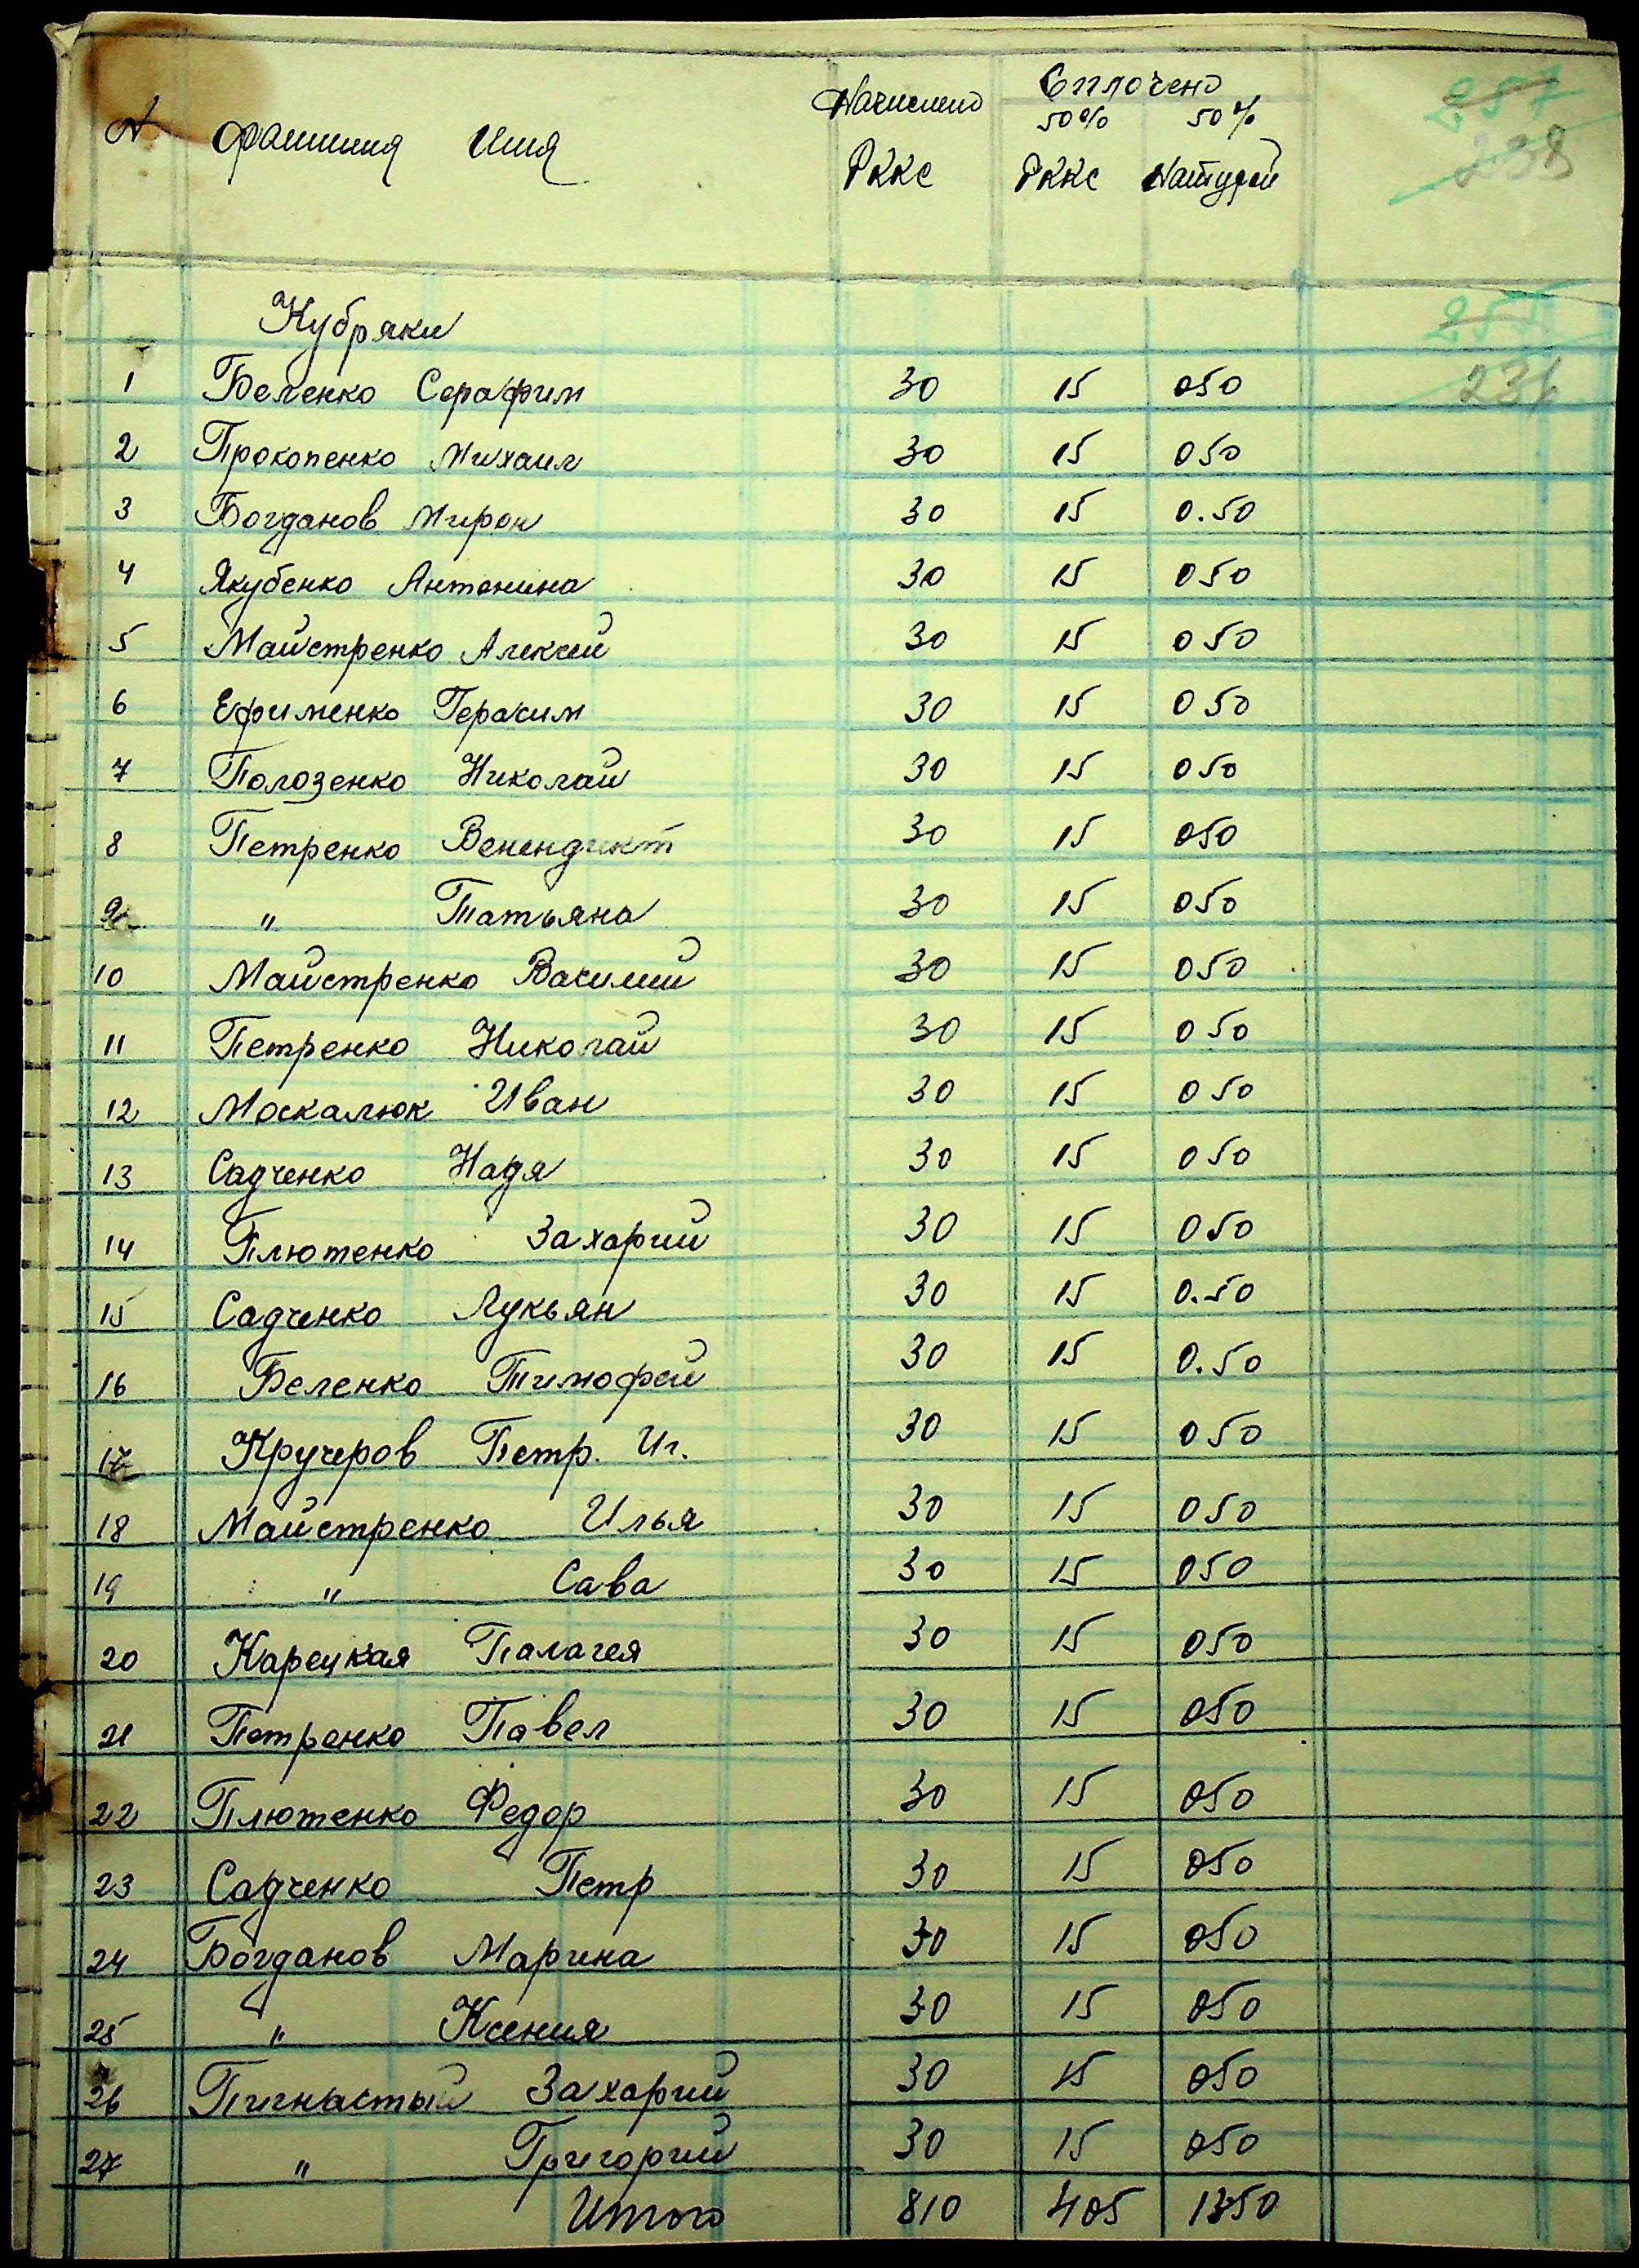 N Фамилия Имя Начислено Оплочено
50% 50%
Рккс Рккс Натурой
257
238
Кубряки
255
1 Беленко Серафим 30 15 050
2 Прокопенко Михаил 30 15 050
3 Богданов Мирон 30 15 0.50
4 Якубенко Антонина 30 15 050
5 Майстренко Алексей 30 15 050
6 Ефименко Герасим 30 15 050
7 Полозенко Николай 30 15 050
8 Петренко Венендикт 30 15 050
9 " Татьяна 30 15 050
10 Майстренко Василий 30 15 050
11 Петренко Николай 30 15 050
12 Москалюк Иван 30 15 050
13 Садченко Надя 30 15 050
14 Плютенко Захарий 30 15 050
15 Садченко Лукьян 30 15 0.50
16 Беленко Тимофей 30 15 0.50
17 Кручеров Петр. Иг. 30 15 050
18 Майстренко Илья 30 15 050
19 " Сава 30 15 050
20 Карецкая Палагея 30 15 050
21 Петренко Павел 30 15 050
22 Плютенко Федор 30 15 050
23 Садченко Петр 30 15 050
24 Богданов Марина 30 15 050
25 " Ксения 30 15 050
26 Пигнастый Захарий 30 15 050
27 " Григорий 30 15 050
Итого 810 405 1350